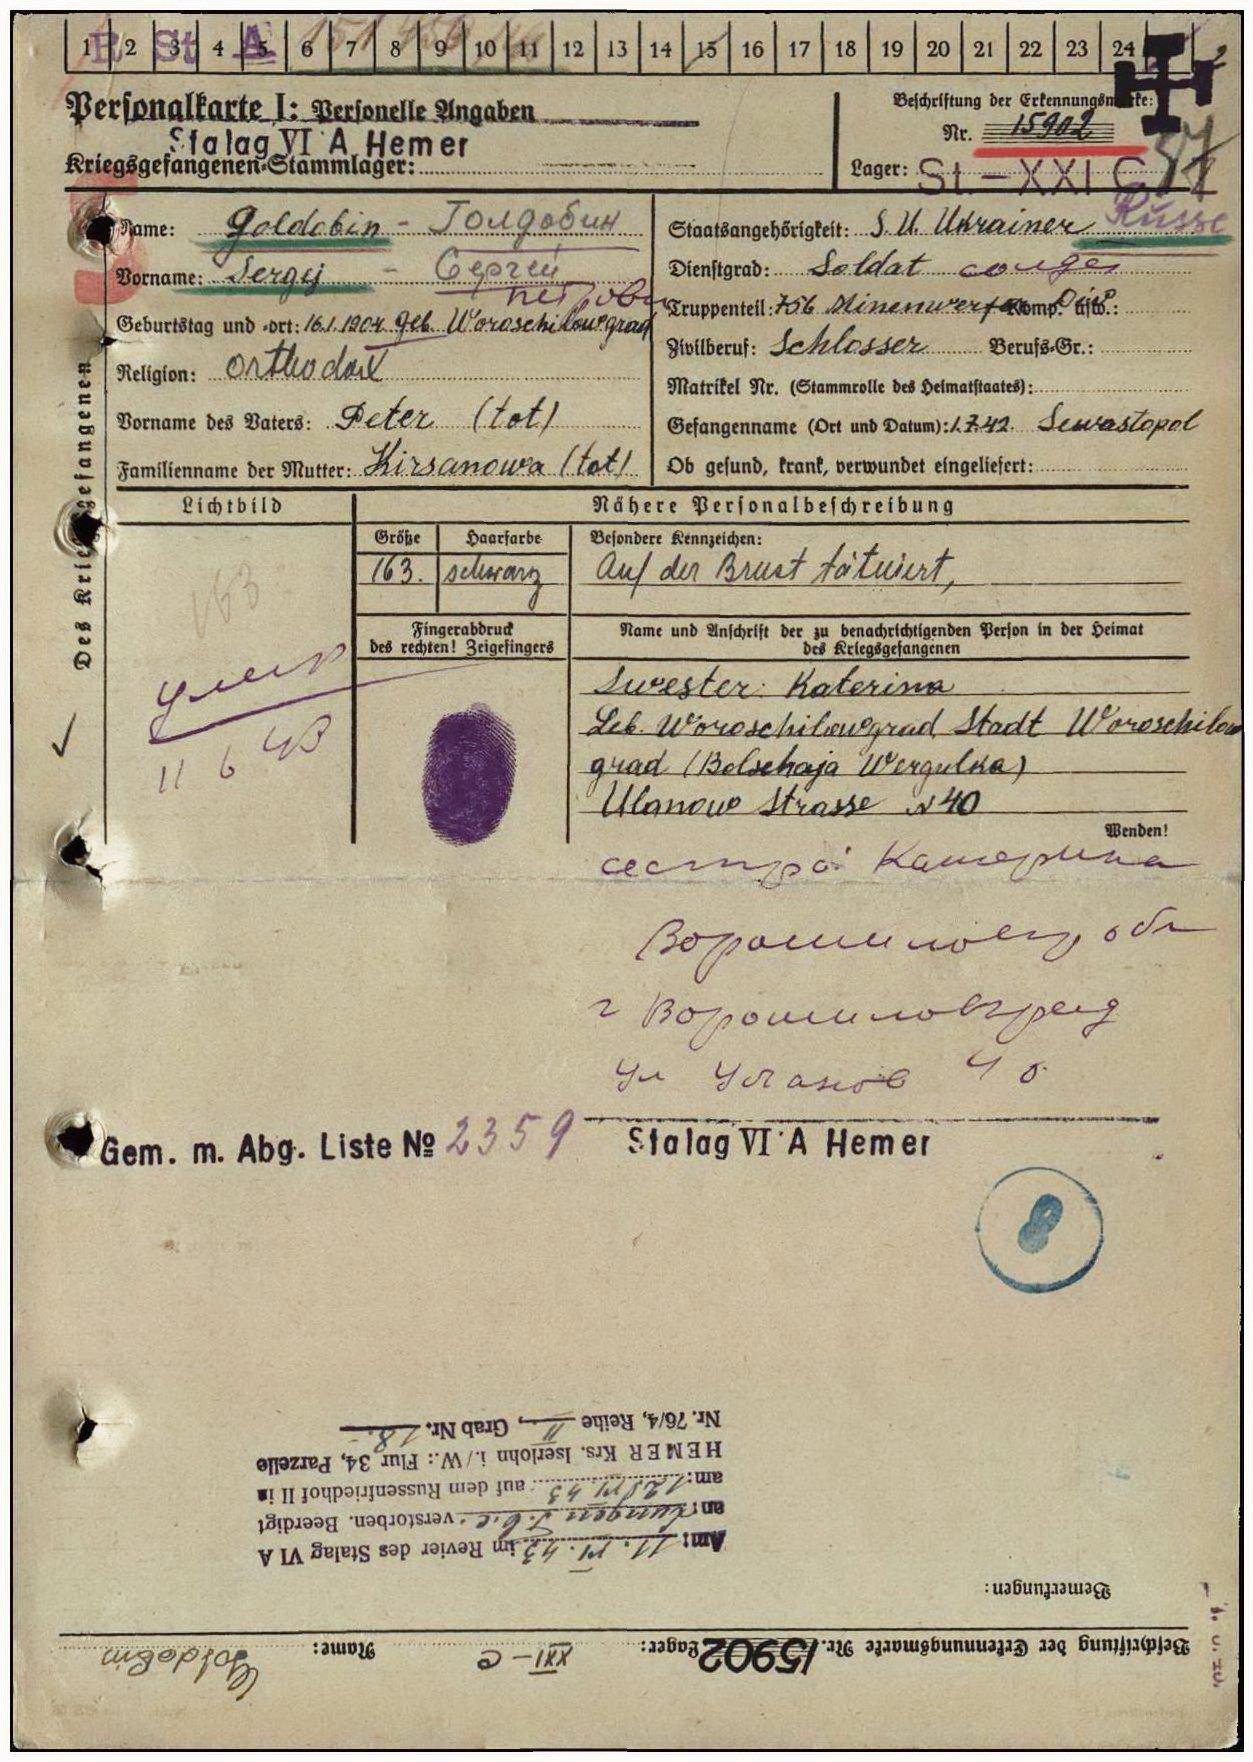 1 2 3 4 5 6 7 8 9 10 11 12 13 14 15 16 17 18 19 20 21 22 23 24
R St A
Personalkarte I: Personelle Angaben
Stalag VI A Hemer
Kriegsgefangenen-Stammlager:
Beschriftung der Erkennungsmarke:
Nr. 15902
Lager: St.-XXI C
Name: Goldobin - Голдобин
Vorname: Sergej - Сергей
Петрович
Geburtstag und -ort: 16.1.1904 Geb. Woroschilowgrad
Religion: Orthodox
Vorname des Vaters: Peter (tot)
Familienname der Mutter: Kirsanowa (tot)
Staatsangehörigkeit: S. U. Ukrainer Russe
Dienstgrad: Soldat солдат
Truppenteil: 756 Minenwerfer Komp. usw.:
Zivilberuf: Schlosser Berufs-Gr.:
Matrikel Nr. (Stammrolle des Heimatstaates):
Gefangenname (Ort und Datum): 1.7.42. Sewastopol
Ob gesund, krank, verwundet eingeliefert:
Des Kriegsgefangenen
Lichtbild
163
умер
11 6 43
Nähere Personalbeschreibung
Größe Haarfarbe Besondere Kennzeichen:
163. schwarz Auf der Brust tätuiert,
Fingerabdruck
des rechten! Zeigefingers
Name und Anschrift der zu benachrichtigenden Person in der Heimat
des Kriegsgefangenen
Swester: Katerina
Geb. Woroschilowgrad Stadt Woroschilow
grad (Bolschaja Wergulka)
Ulanow Strasse N 40
Wenden!
сестра Катерина
Ворошиловгр обл
г Ворошиловград
ул Уланов 40
Gem. m. Abg. Liste № 2359 Stalag VI A Hemer
8
Beschriftung der Erkennungsmarke Nr. 15902 Lager: XXI-C Name: Goldobin
Bemerkungen:
Am: 11.VI.43 im Revier des Stalag VI A
an: Lungen T.b.c. verstorben. Beerdigt
am: 12.VI.43 auf dem Russenfriedhof II in
HEMER Krs. Iserlohn i./W.: Flur 34, Parzelle
Nr. 76/4, Reihe II, Grab Nr. 18.